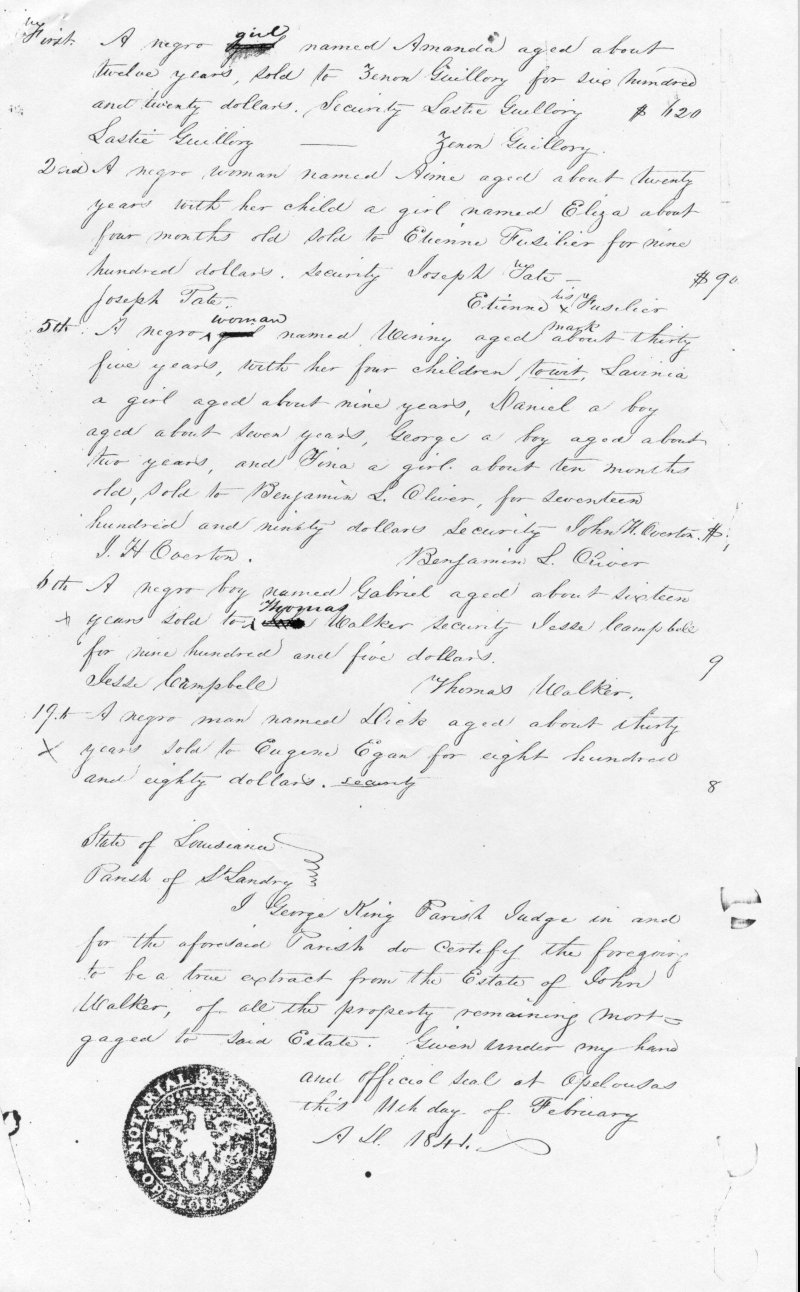 First. A negro girl named Amanda aged about
twelve years, sold to Zenon Guillory for six hundred
and twenty dollars. Security Lastie Guillory $ 620
Lastie Guillory — Zenon Guillory.
2nd A negro woman named Aime aged about twenty
years with her child a girl named Eliza about
four months old sold to Etienne Fusilier for nine
hundred dollars. security Joseph Tate — $90
Joseph Tate. Etienne his x mark Fusilier
5th A negro woman named Winny aged about thirty
five years, with her four children, towit, Lavinia
a girl aged about nine years, Daniel a boy
aged about seven years, George a boy aged about
two years, and Tina a girl about ten months
old, sold to Benjamin L. Oliver, for seventeen
hundred and ninety dollars security John H. Overton. $
J. H Overton. Benjamin L. Oliver
6th A negro boy named Gabriel aged about sixteen
x years sold to Thomas Walker security Jesse Campbell
for nine hundred and five dollars. 9
Jesse Campbell Thomas Walker.
19th A negro man named Dick aged about thirty
x years sold to Eugene Egan for eight hundred
and eighty dollars. security 8
State of Louisiana
Parish of St Landry
I George King Parish Judge in and
for the aforesaid Parish do certify the foregoing
to be a true extract from the Estate of John
Walker, of all the property remaining mort=
gaged to said Estate. Given under my hand
and official seal at Opelousas
this 11th day of February
A D. 1841.
NOTARIAL & PROBATE
OPELOUSAS